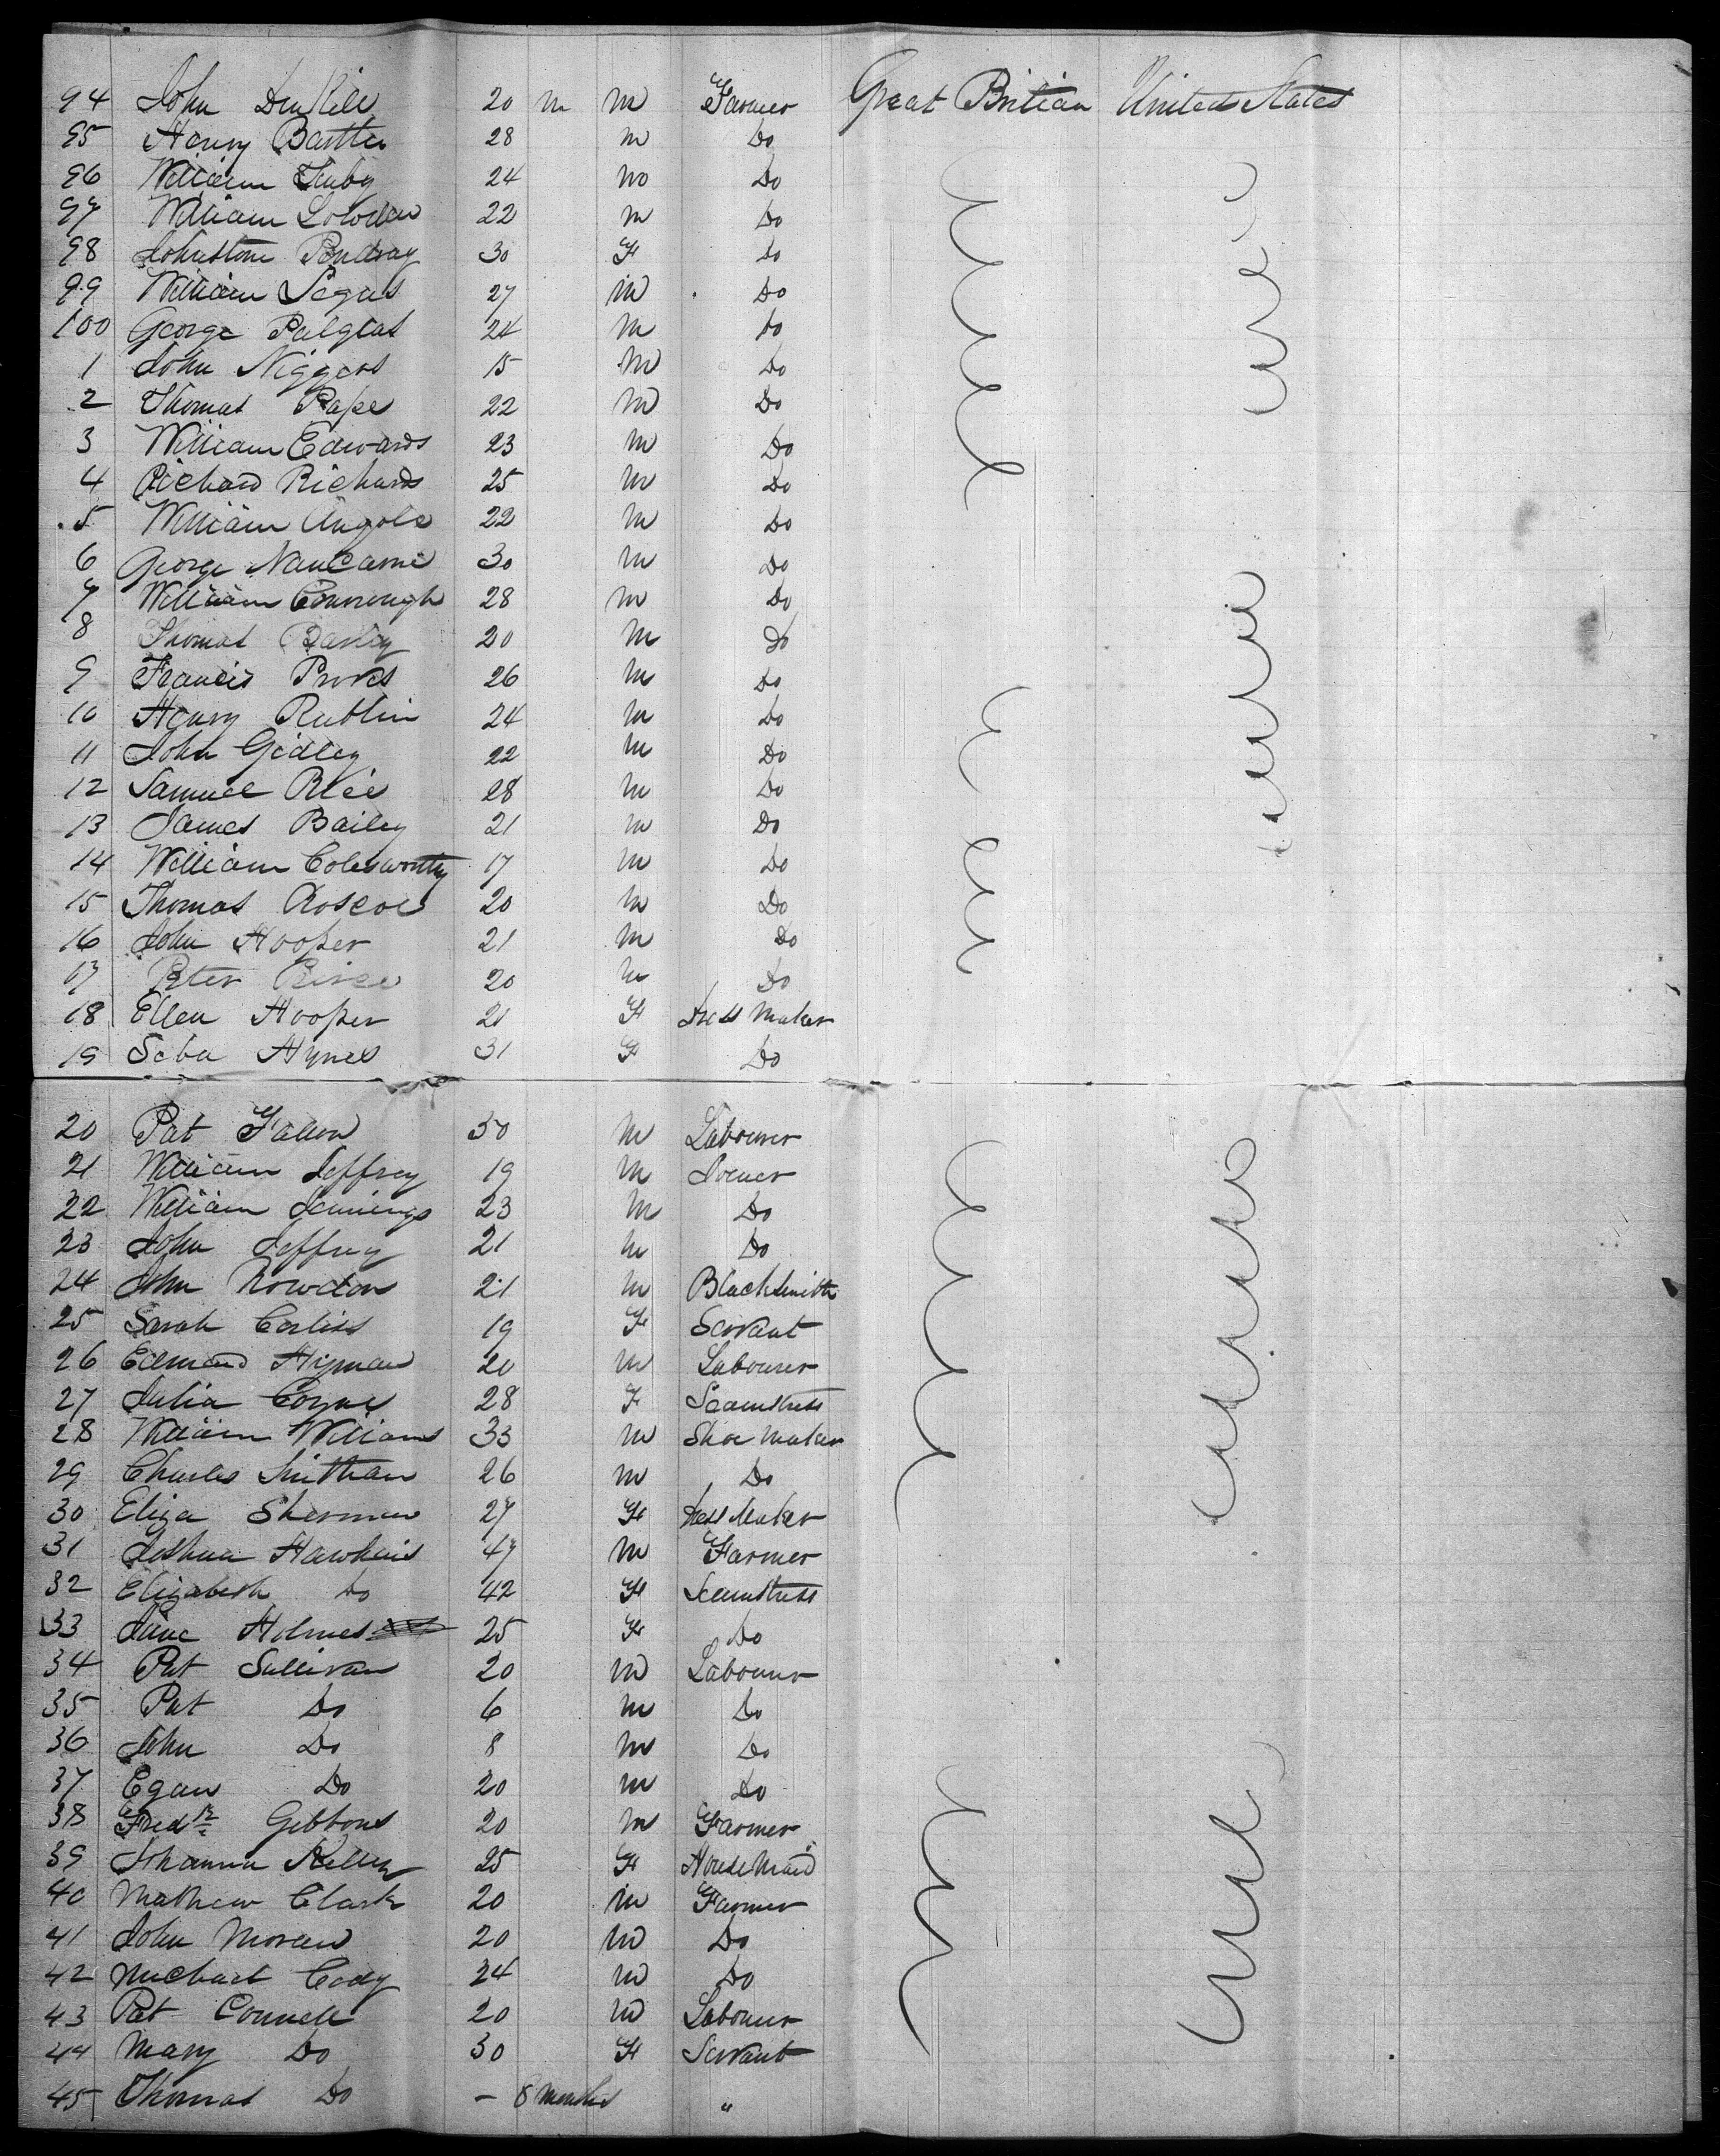 94 John 20 m M Farmer Great Britian United States
95 Henry 28 M Do
96 William 24 M Do
97 William 22 M Do
98 Johnstone 30 F Do
99 William 27 M Do
100 George 24 M Do
1 John Niggers 15 M Do
2 Thomas Pape 22 M Do
3 William Edwards 23 M Do
4 Richard Richards 25 M Do
5 William 22 M Do
6 George 30 M Do
7 William 28 M Do
8 Thomas 20 M Do
9 Francis 26 M Do
10 Henry Rublin 24 M Do
11 John Gidley 22 M Do
12 Samuel Rice 28 M Do
13 James Bailey 21 M Do
14 William Colesworthy 17 M Do
15 Thomas Roscoe 20 M Do
16 John Hooper 21 M Do
17 Peter 20 M Do
18 Ellen Hooper 21 F Dress Maker
19 Seba Hynes 31 F Do
20 Pat Fallon 50 M Labourer
21 William Jeffrey 19 M Joiner
22 William Jennings 23 M Do
23 John Jeffrey 21 M Do
24 John Rowdon 21 M Blacksmith
25 Sarah Corliss 19 F Servant
26 Edmund Hyman 20 M Labourer
27 Julia Coyne 28 F Seamstress
28 William Williams 33 M Shoe Maker
29 Charles 26 M Do
30 Eliza Sherman 27 F Dress Maker
31 Joshua Hawkins 47 M Farmer
32 Elizabeth Do 42 F Seamstress
33 Jane Holmes 25 F Do
34 Pat Sullivan 20 M Labourer
35 Pat Do 6 M Do
36 John Do 8 M Do
37 Egan Do 20 M Do
38 Fredk Gibbons 20 M Farmer
39 Johanna Kelley 25 F House Maid
40 Mathew Clark 20 M Farmer
41 John Moran 20 M Do
42 Michael Cody 24 M Do
43 Pat Connell 20 M Labourer
44 Mary Do 30 F Servant
45 Thomas Do - 8 months "